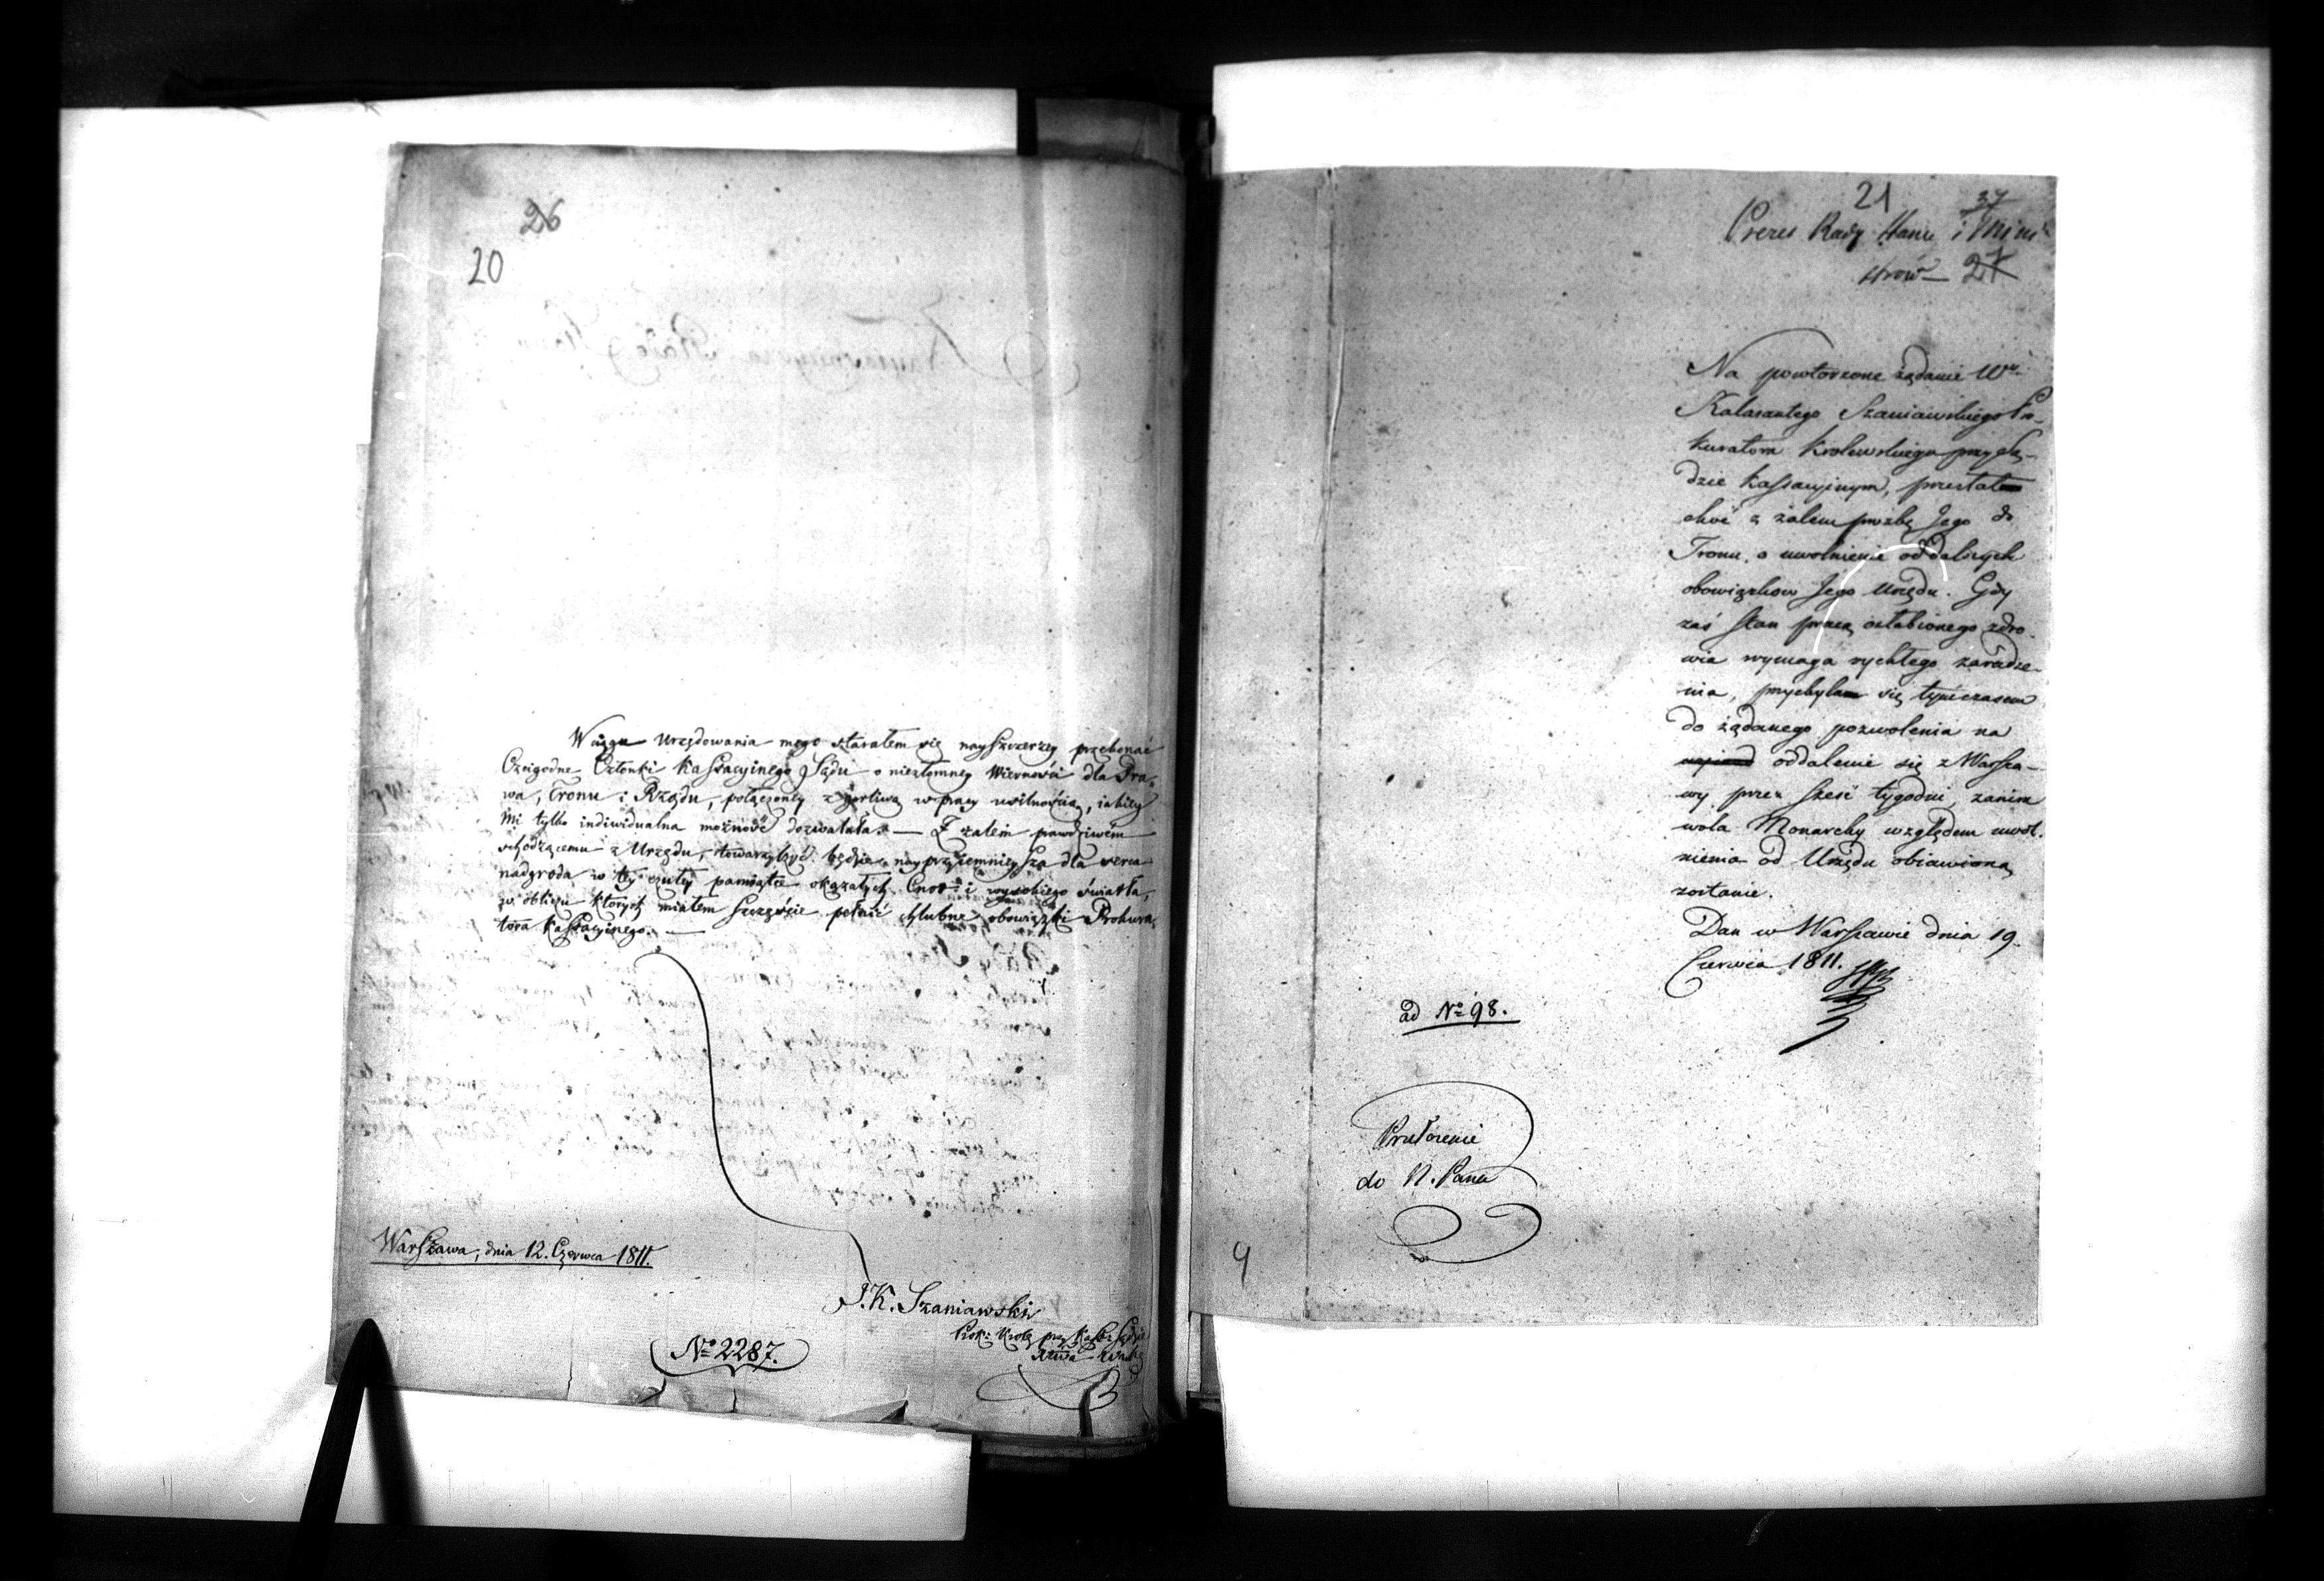 26
20
W ciągu Urzędowania mego starałem się nayszczerzey przekonać
Czcigodne Członki Kassacyinego Sądu o niezłomney Wierności dla Pra-
wa, Tronu i Rządu, połączoney z gorliwą w pracy usilnością, iakiey
mi tylko indiwidualna możność dozwalała. — Z żalem prawdziwém
schodzącemu z Urzędu, towarzyszyć będzie nayprzyiemnieysza dla serca
nadgroda w tey czułey pamiątce okazałych Cnot i wysokiego światła,
w obliczu których miałem szczęście pełnić chlubne obowiązki Prokura-
tora Kassacyinego. —
Warszawa, dnia 12. Czerwca 1811.
J. K. Szaniawski
Prok: Król: przy Kass: Sądzie
No 2287.
21
37
Prezes Rady Stanu i Mini-
strów — 27
Na powtórzone żądanie Wo
Kalasantego Szaniawskiego Pro-
kuratora Krolewskiego przy Są-
dzie Kassacyinym, przesłałem
choć z żalem prozbę Jego do
Tronu, o uwolnienie od dalszych
obowiązkow Jego Urzędu. Gdy
zaś stan pracą osłabionego zdro-
wia wymaga rychłego zaradze-
nia, przychylam się tymczasem
do żądanego pozwolenia na
oddalenie się z Warsza-
wy przez sześć tygodni, zanim
wola Monarchy względem uwol-
nienia od Urzędu obiawioną
zostanie.
Dan w Warszawie dnia 19.
Czerwca 1811.
ad No 98.
Przełożenie
do N. Pana
9